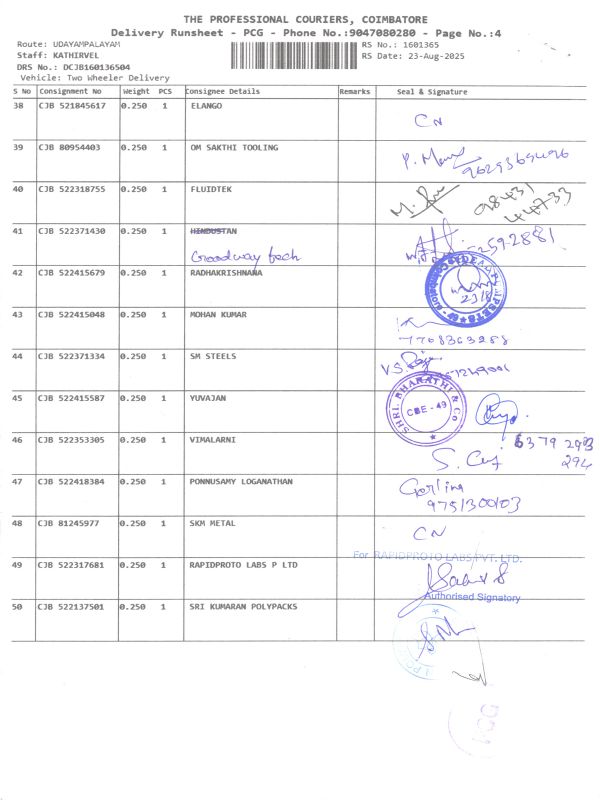 THE PROFESSIONAL COURIERS, COIMBATORE
Delivery Runsheet - PCG - Phone No.:9047080280 - Page No.:4
Route: UDAYAMPALAYAM RS No.: 1601365
Staff: KATHIRVEL RS Date: 23-Aug-2025
DRS No.: DCJB160136504
Vehicle: Two Wheeler Delivery
S No Consignment No Weight PCS Consignee Details Remarks Seal & Signature
38 CJB 521845617 0.250 1 ELANGO
CN
39 CJB 80954403 0.250 1 OM SAKTHI TOOLING
40 CJB 522318755 0.250 1 FLUIDTEK
98431
44733
41 CJB 522371430 0.250 1 HINDUSTAN
Groodway tech
42 CJB 522415679 0.250 1 RADHAKRISHNANA
43 CJB 522415048 0.250 1 MOHAN KUMAR
7768363288
44 CJB 522371334 0.250 1 SM STEELS
45 CJB 522415587 0.250 1 YUVAJAN
SHRI. BHARATHI & Co
CBE - 49
46 CJB 522353305 0.250 1 VIMALARNI
6379 293
294
47 CJB 522418384 0.250 1 PONNUSAMY LOGANATHAN
9751300103
48 CJB 81245977 0.250 1 SKM METAL
CN
For RAPIDPROTO LABS PVT. LTD.
49 CJB 522317681 0.250 1 RAPIDPROTO LABS P LTD
Authorised Signatory
50 CJB 522137501 0.250 1 SRI KUMARAN POLYPACKS